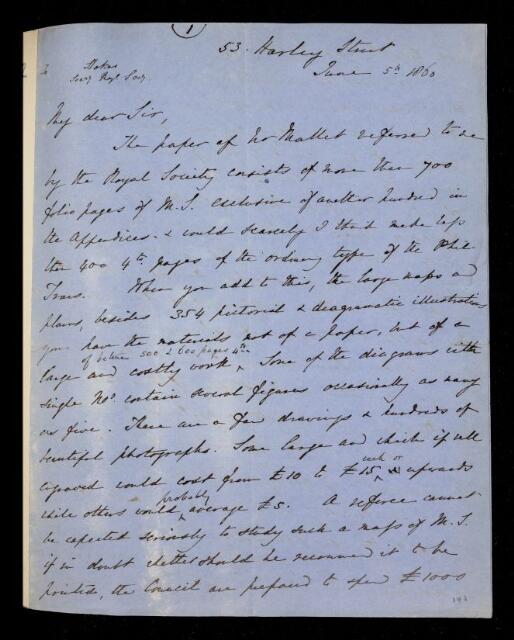 1
53. Harley Street
June 5th 1860
Stokes
Secy Royl Socy.
My dear Sir,
The paper of Mr Mallet referred to me
by the Royal Society consists of more than 700
folio pages of M.S. exclusive of another hundred in
the Appendices. & could scarcely I think make less
than 400 4to pages of the ordinary type of the Phil
Trans. When you add to this, the large maps and
plans, besides 354 pictorial & diagramatic illustrations
you have the materials not of a paper, but of a
of between 500 & 600 pages 4to
large and costly work. Some of the diagrams with
single Nos. contain several figures occasionally as many
as five. There are a few drawings & hundreds of
beautiful photographs. Some large and which if well
engraved would cost from £10 to £15 each or upwards
while others would probably average £5. A referee cannot
be expected seriously to study such a mass of M.S.
if in doubt whether should he recommend it to be
printed, the Council are prepared to spend £1000